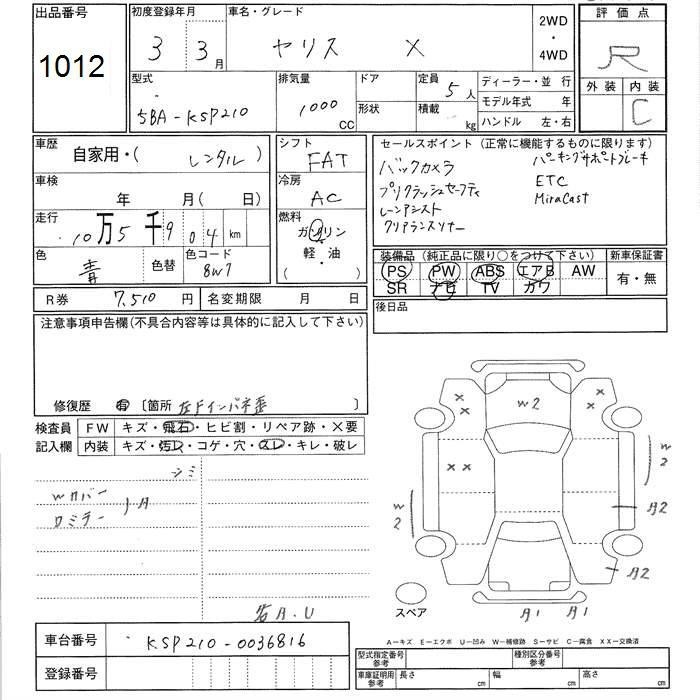 出品番号
1012
初度登録年月
3 3月
車名・グレード
ヤリス X
2WD
・
4WD
評価点
R
外装 内装
C
型式
5BA-KSP210
排気量
1000
CC
ドア
形状
定員
5人
積載
kg
ディーラー・並 行
モデル年式 年
ハンドル 左・右
車歴
自家用・( レンタル )
車検
年 月( 日)
走行
10万5千904 km
色
青
色替
色コード
8W7
シフト
FAT
冷房
AC
燃料
ガソリン
軽・油
セールスポイント (正常に機能するものに限ります)
バックカメラ
プリクラッシュセーフティ
レーンアシスト
クリアランスソナー
パーキングサポートブレーキ
ETC
MiraCast
装備品 (純正品に限り○をつけて下さい)
PS PW ABS エアB AW
SR ナビ TV カワ
新車保証書
有・無
R券 7,510円
名変期限 月 日
後日品
注意事項申告欄(不具合内容等は具体的に記入して下さい)
修復歴 有 〔箇所 左Fインパネ歪 〕
検査員
記入欄
FW キズ・飛石・ヒビ割・リペア跡・×要
内装 キズ・汚レ・コゲ・穴・スレ・キレ・破レ
シミ
Wカバー
ロミラー
W2
××
××
××
W2
W2
スペア
車台番号
KSP210-0036816
登録番号
A-キズ E-エクボ U-凹み W-補修跡 S-サビ C-腐食 XX-交換済
型式指定番号
参考
種別区分番号
参考
車庫証明用
参考
長さ cm
幅 cm
高さ cm